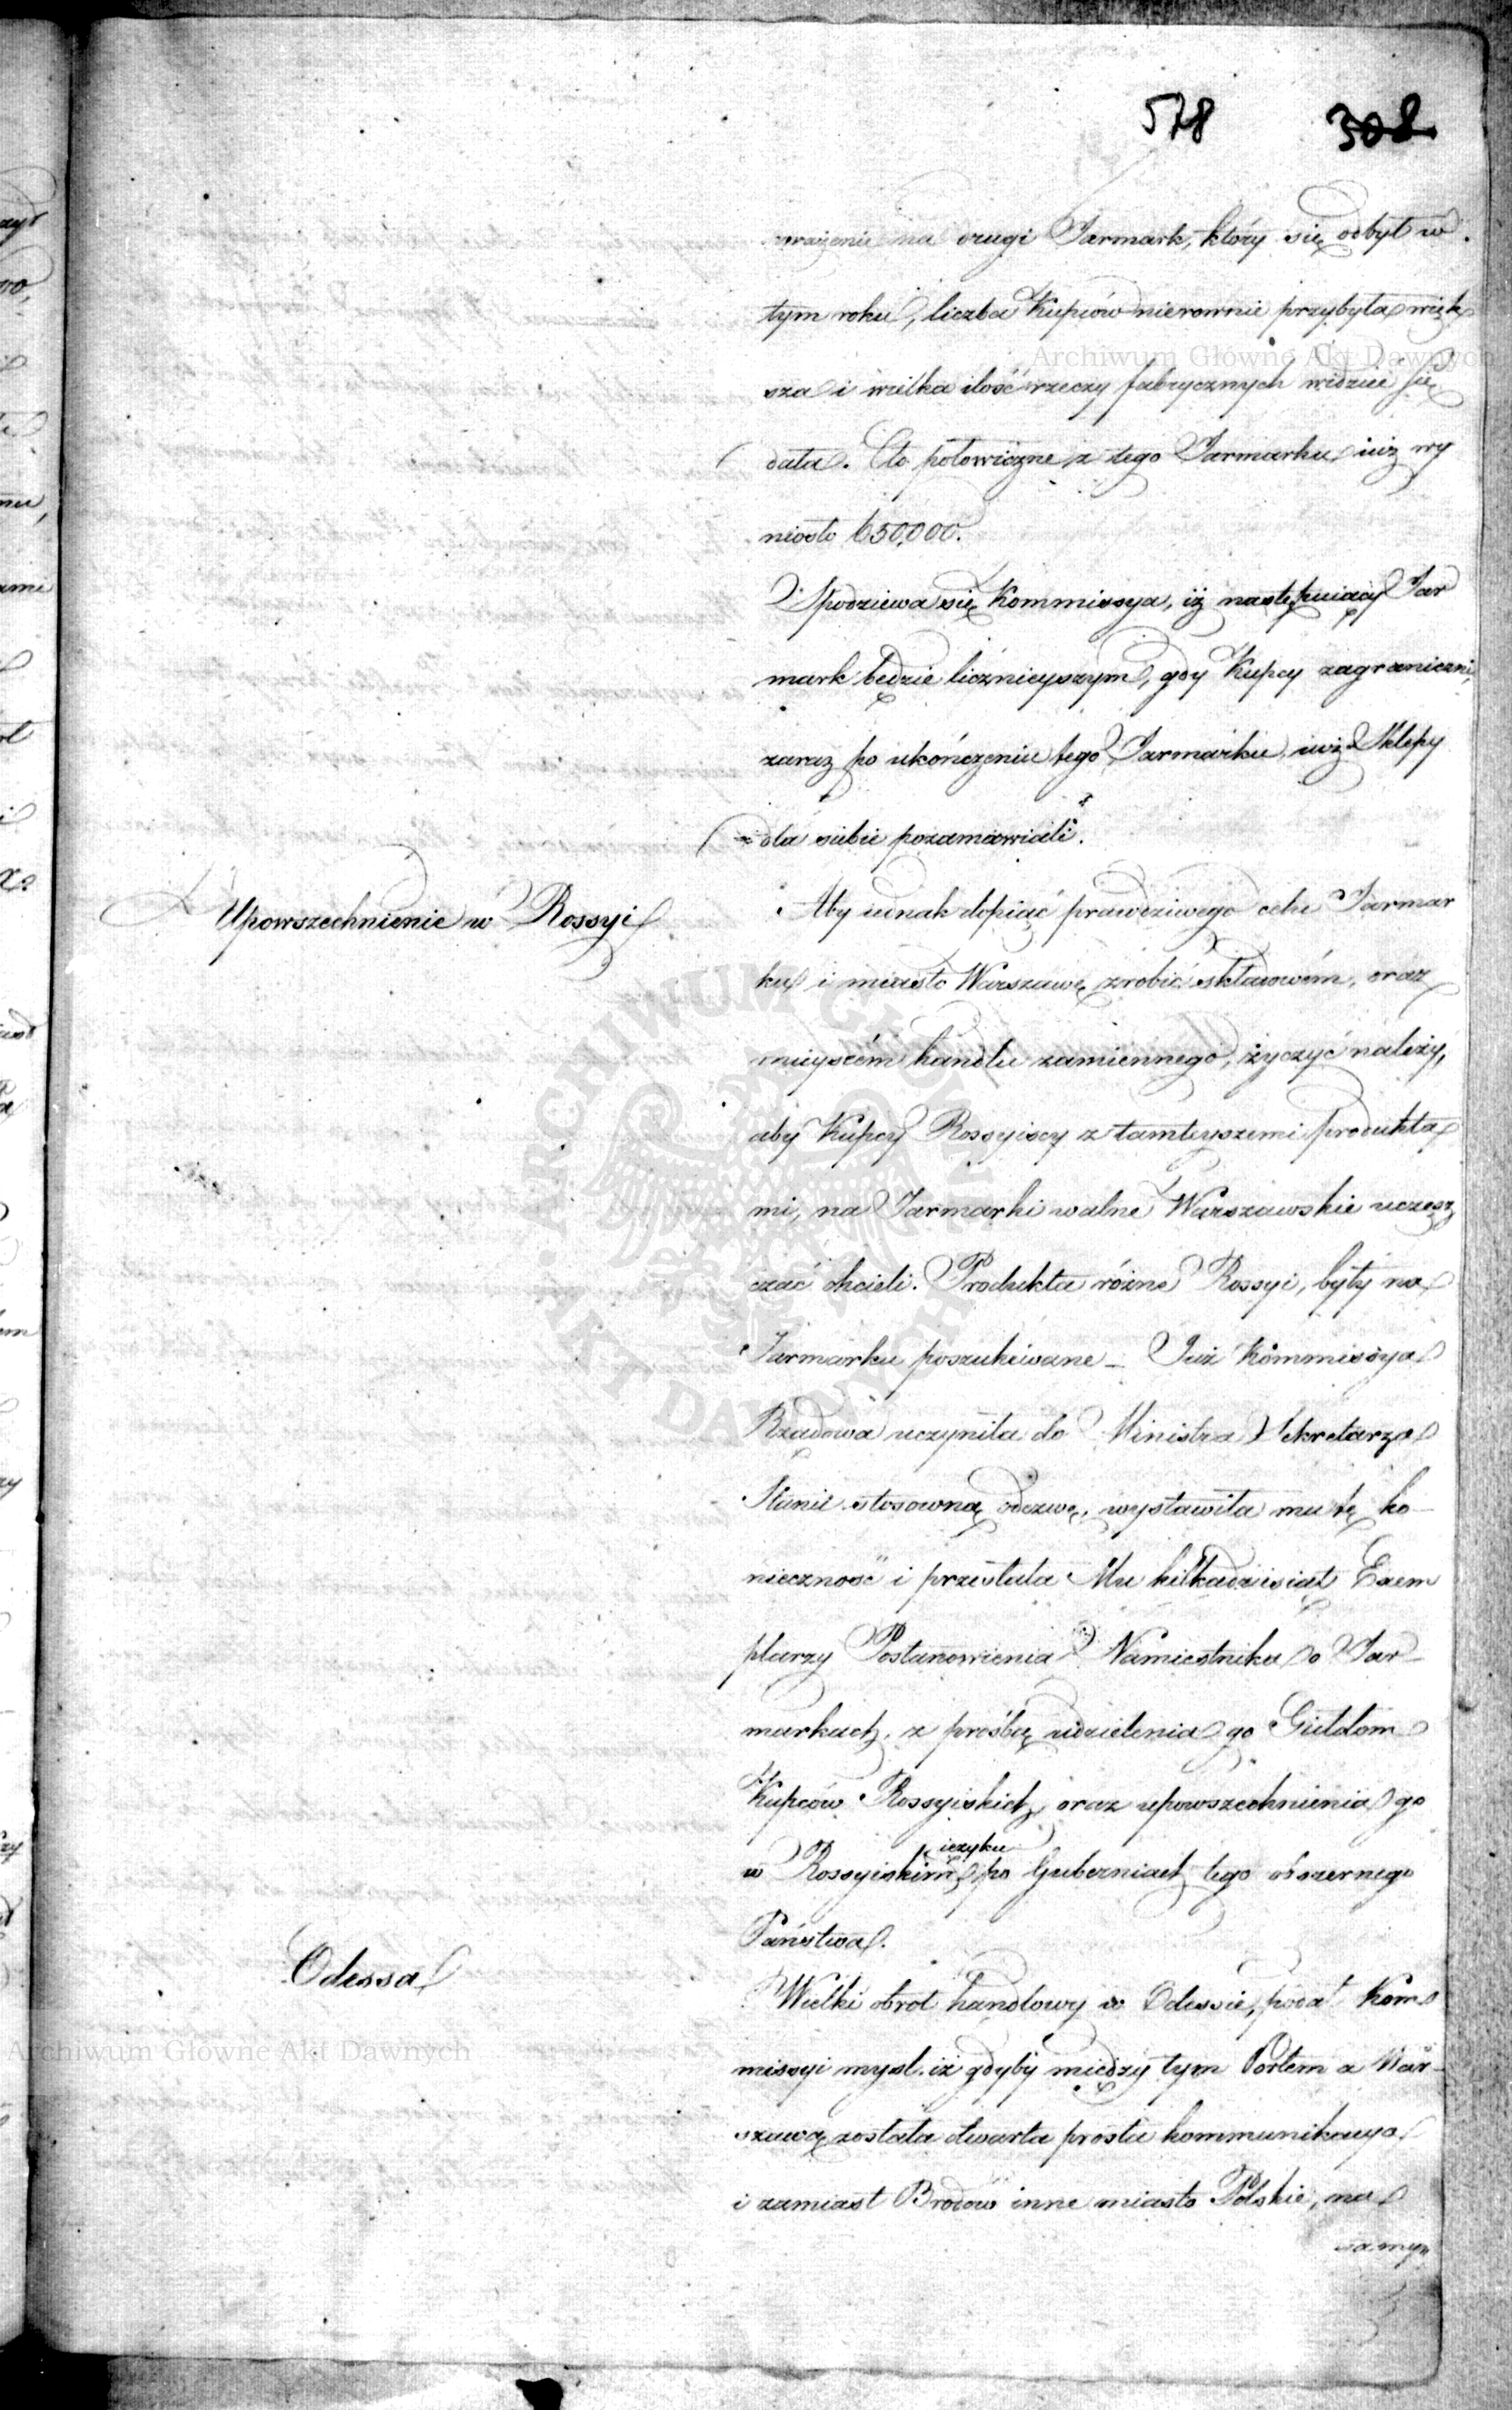 578 308
wrażenie na drugi Jarmark, który się odbył w
tym roku, liczba Kupców nierownie przybyła więk
sza i wielka ilość rzeczy fabrycznych widzieć się
dała. Cło połowiczne z tego Jarmarku iuż wy
niosło 650,000.
Spodziewa się Kommissya, iż następuiący Jar
mark będzie licznieyszym, gdy Kupcy zagraniczni,
zaraz po ukończeniu tego Jarmarku, iuż Sklepy
dla siebie pozamawiali.
Upowszechnienie w Rossyi
Aby iednak dopiąć prawdziwego celu Jarmar
ku i miasto Warszawę zrobić składowém, oraz
mieyscém handlu zamiennego, życzyć należy,
aby Kupcy Rossyiscy z tamteyszemi produkta
mi, na Jarmarki walne Warszawskie uczęsz
czać chcieli. Produkta różne Rossyi, były na
Jarmarku poszukiwane – Już Kommissya
Rządowa uczyniła do Ministra Sekretarza
Stanu stosowną odezwę, wystawiła mu tę ko-
nieczność i przesłała Mu kilkadziesiąt Exem
plarzy Postanowienia Namiestnika o Jar-
markach, z prośbą udzielenia go Guldom
Kupców Rossyiskich, oraz upowszechnienia go
ięzyku
w Rossyiskim po Guberniach tego obszernego
Państwa.
Odessa
Wielki obrot handlowy w Odessie, podał Kom
missyi myśl, iż gdyby między tym Portem a War-
szawą została otwarta prosta kommunikacya
i zamiast Brodów inne miasto Polskie, na
samym
Archiwum Główne Akt Dawnych
ARCHIWUM GŁÓWNE AKT DAWNYCH
Archiwum Główne Akt Dawnych